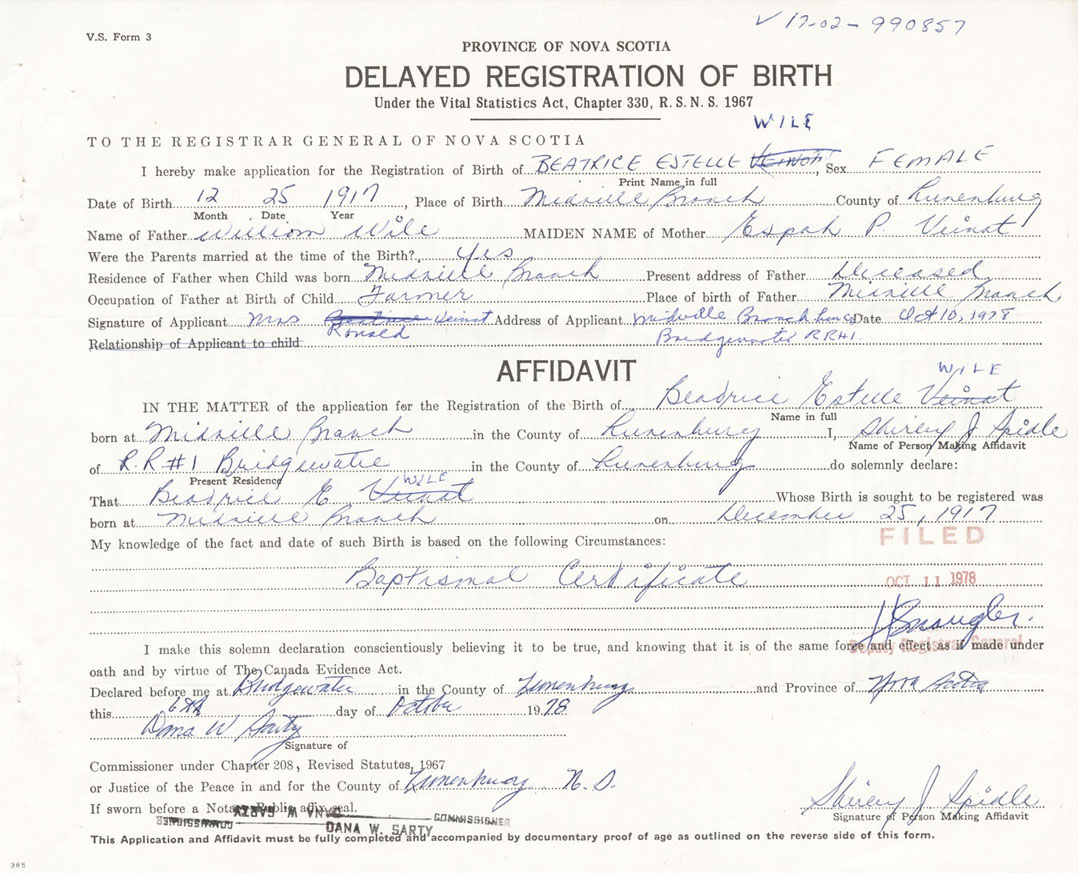 V.S. Form 3
17-02-990857
PROVINCE OF NOVA SCOTIA
DELAYED REGISTRATION OF BIRTH
Under the Vital Statistics Act, Chapter 330, R.S.N.S. 1967
WILE
TO THE REGISTRAR GENERAL OF NOVA SCOTIA
I hereby make application for the Registration of Birth of BEATRICE ESTELLE VEINOT, Sex FEMALE
Print Name in full
Date of Birth 12 25 1917, Place of Birth Midville Branch County of Lunenburg
Month Date Year
Name of Father William Wile MAIDEN NAME of Mother Espah P. Veinat
Were the Parents married at the time of the Birth? yes
Residence of Father when Child was born Midville Branch Present address of Father Deceased
Occupation of Father at Birth of Child Farmer Place of birth of Father Midville Branch
Signature of Applicant Mrs Beatrice Veinat Address of Applicant Midville Branch Lun Co Date Oct 10, 1978
Ronald Bridgewater RR#1.
Relationship of Applicant to child
AFFIDAVIT
WILE
IN THE MATTER of the application for the Registration of the Birth of Beatrice Estelle Veinat
Name in full
born at Midville Branch in the County of Lunenburg I, Shirley J Spidle
Name of Person Making Affidavit
of R.R #1 Bridgewater in the County of Lunenburg do solemnly declare:
Present Residence
WILE
That Beatrice E Veinat Whose Birth is sought to be registered was
born at Midville Branch on December 25, 1917
FILED
My knowledge of the fact and date of such Birth is based on the following Circumstances:
Baptismal Certificate
OCT 11 1978
Deputy Registrar General
I make this solemn declaration conscientiously believing it to be true, and knowing that it is of the same force and effect as if made under
oath and by virtue of The Canada Evidence Act.
Declared before me at Bridgewater in the County of Lunenburg and Province of Nova Scotia
this 6th day of October 1978
Dana W Sarty
Signature of
Commissioner under Chapter 208, Revised Statutes, 1967
or Justice of the Peace in and for the County of Lunenburg N.S.
If sworn before a Notary Public affix seal.
Shirley J Spidle
Signature of Person Making Affidavit
DANA W. SARTY
COMMISSIONER
DANA W. SARTY
COMMISSIONER
This Application and Affidavit must be fully completed and accompanied by documentary proof of age as outlined on the reverse side of this form.
385